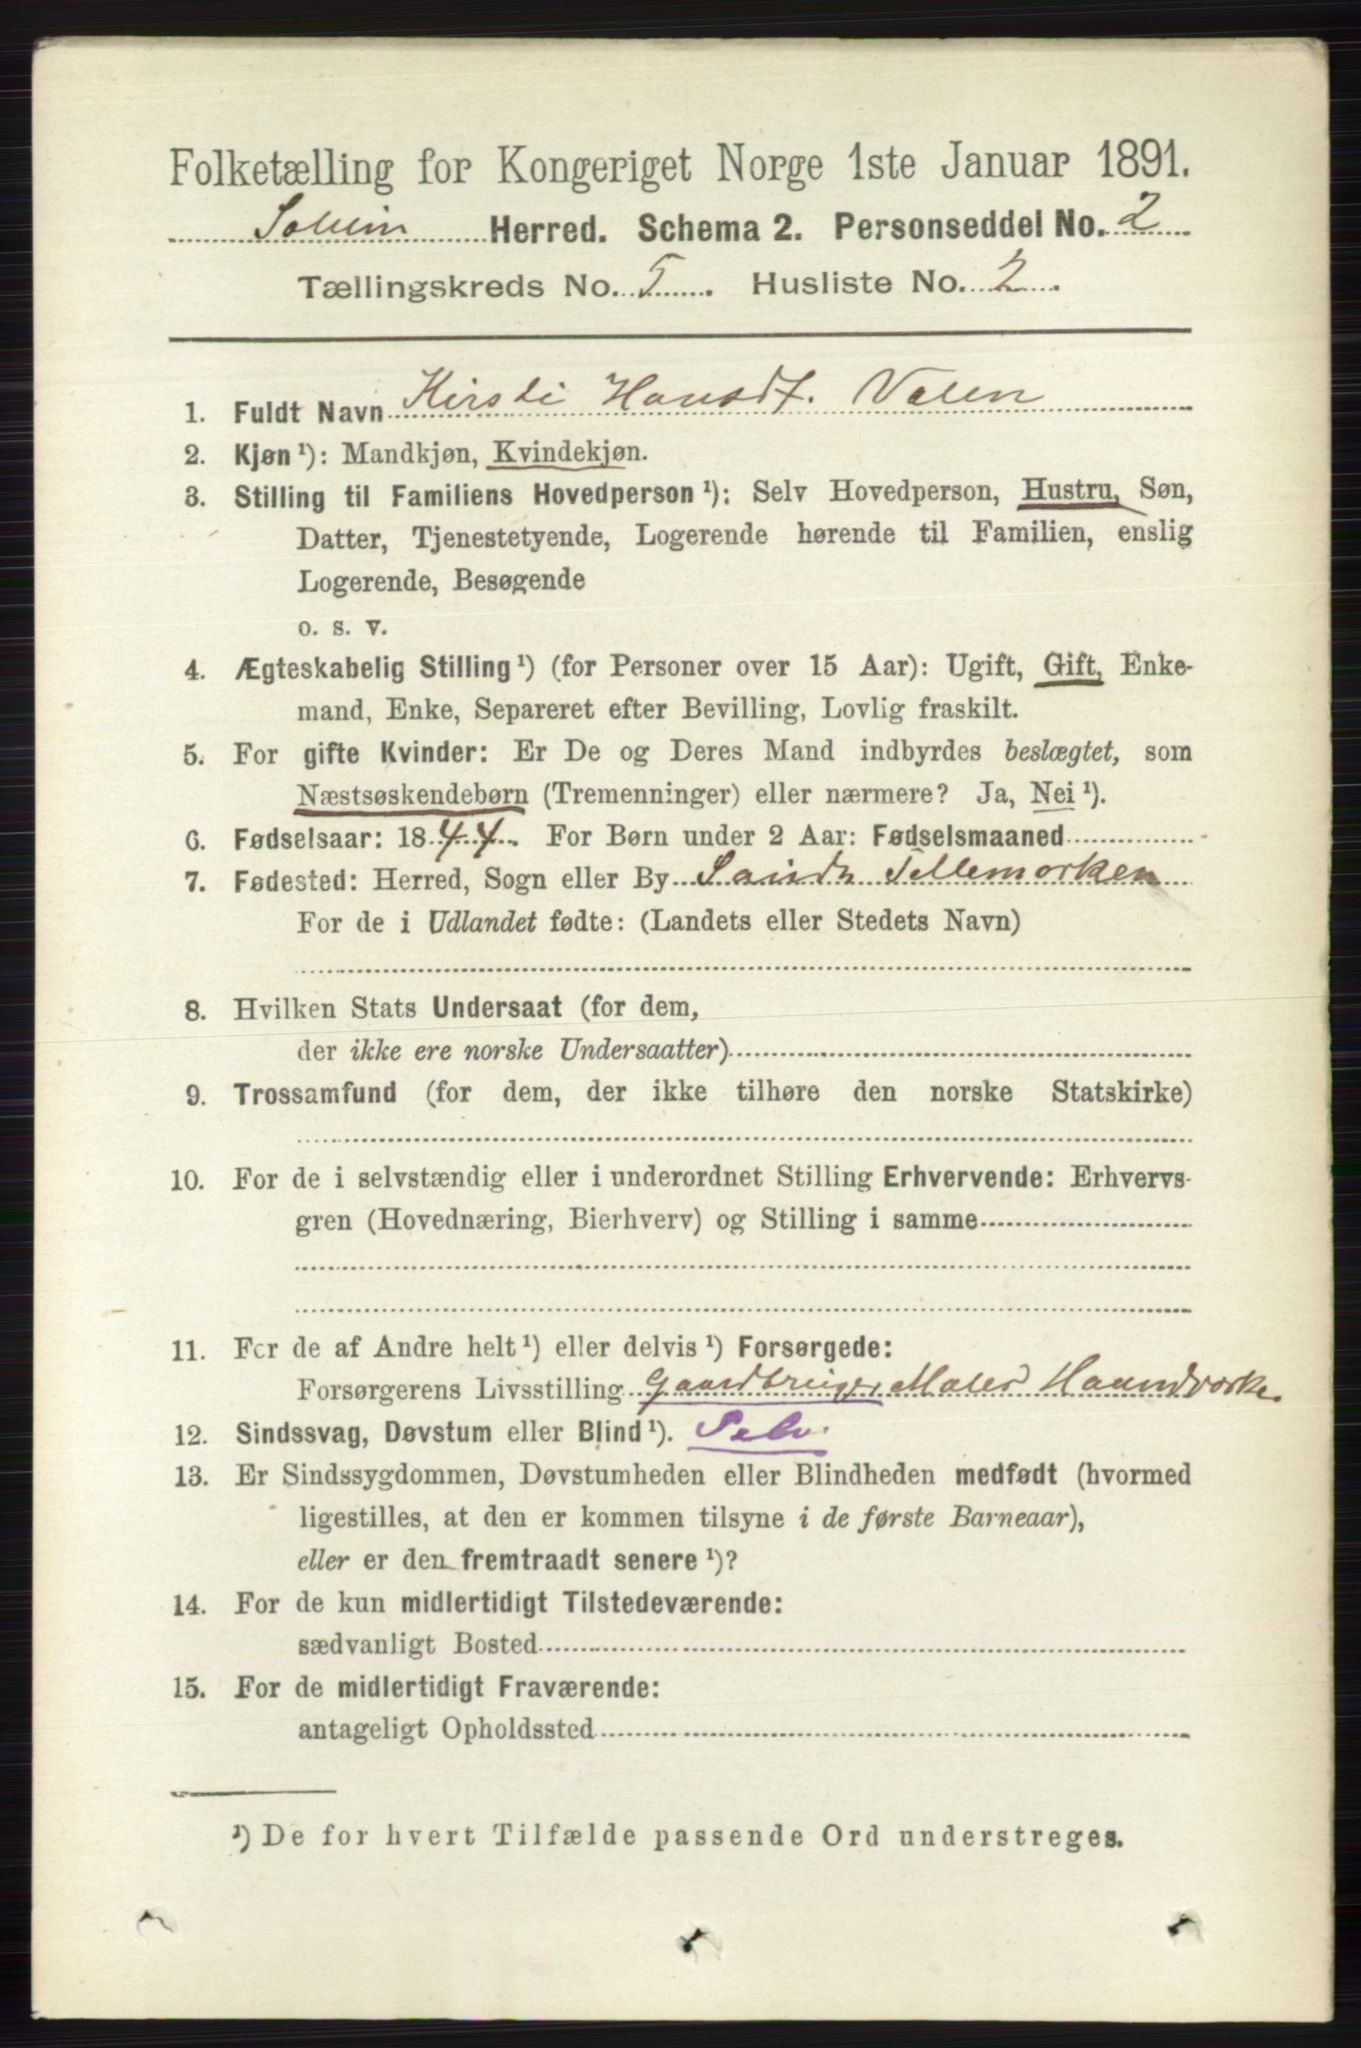 Folketælling for Kongeriget Norge 1ste Januar 1891.
Herred. Schema 2. Personseddel No. 2
Tællingskreds No. 5. Husliste No. 2.
1. Fuldt Navn Kirsti Hansdt. Valen
2. Kjøn ¹): Mandkjøn, Kvindekjøn.
3. Stilling til Familiens Hovedperson ¹): Selv Hovedperson, Hustru, Søn,
Datter, Tjenestetyende, Logerende hørende til Familien, enslig
Logerende, Besøgende
o. s. v.
4. Ægteskabelig Stilling ¹) (for Personer over 15 Aar): Ugift, Gift, Enke-
mand, Enke, Separeret efter Bevilling, Lovlig fraskilt.
5. For gifte Kvinder: Er De og Deres Mand indbyrdes beslægtet, som
Næstsøskendebørn (Tremenninger) eller nærmere? Ja, Nei ¹).
6. Fødselsaar: 1844. For Børn under 2 Aar: Fødselsmaaned
7. Fødested: Herred, Sogn eller By Tellemorken
For de i Udlandet fødte: (Landets eller Stedets Navn)
8. Hvilken Stats Undersaat (for dem,
der ikke ere norske Undersaatter)
9. Trossamfund (for dem, der ikke tilhøre den norske Statskirke)
10. For de i selvstændig eller i underordnet Stilling Erhvervende: Erhvervs-
gren (Hovednæring, Bierhverv) og Stilling i samme
11. For de af Andre helt ¹) eller delvis ¹) Forsørgede:
Forsørgerens Livsstilling Gaardbruger Maler Haandværker
12. Sindssvag, Døvstum eller Blind ¹). Selv.
13. Er Sindssygdommen, Døvstumheden eller Blindheden medfødt (hvormed
ligestilles, at den er kommen tilsyne i de første Barneaar),
eller er den fremtraadt senere ¹)?
14. For de kun midlertidigt Tilstedeværende:
sædvanligt Bosted
15. For de midlertidigt Fraværende:
antageligt Opholdssted
¹) De for hvert Tilfælde passende Ord understreges.